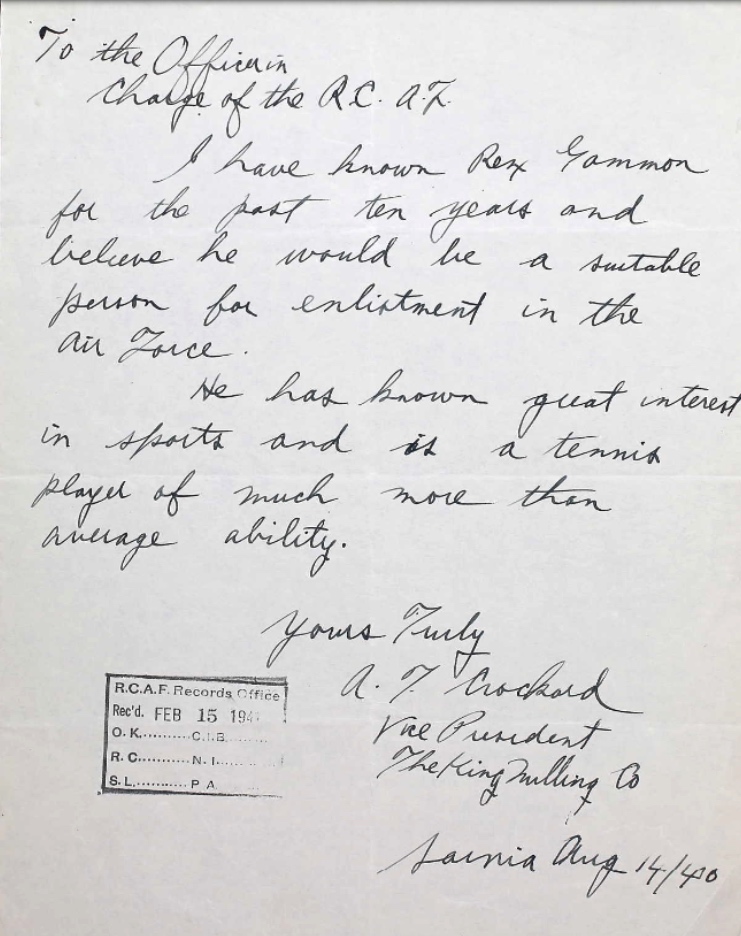 To the Officer in
Charge of the R.C. A.F.
I have known Rex Gammon
for the past ten years and
believe he would be a suitable
person for enlistment in the
Air Force.
He has known great interest
in sports and is a tennis
player of much more than
average ability.
Yours Truly
A. F. Crockard
Vice President
The King Milling Co
Sarnia Aug 14/40
R.C.A.F. Records Office
Rec'd. FEB 15 194
O.K..........C.I.B..........
R.C..........N.I..........
S.L..........P.A..........